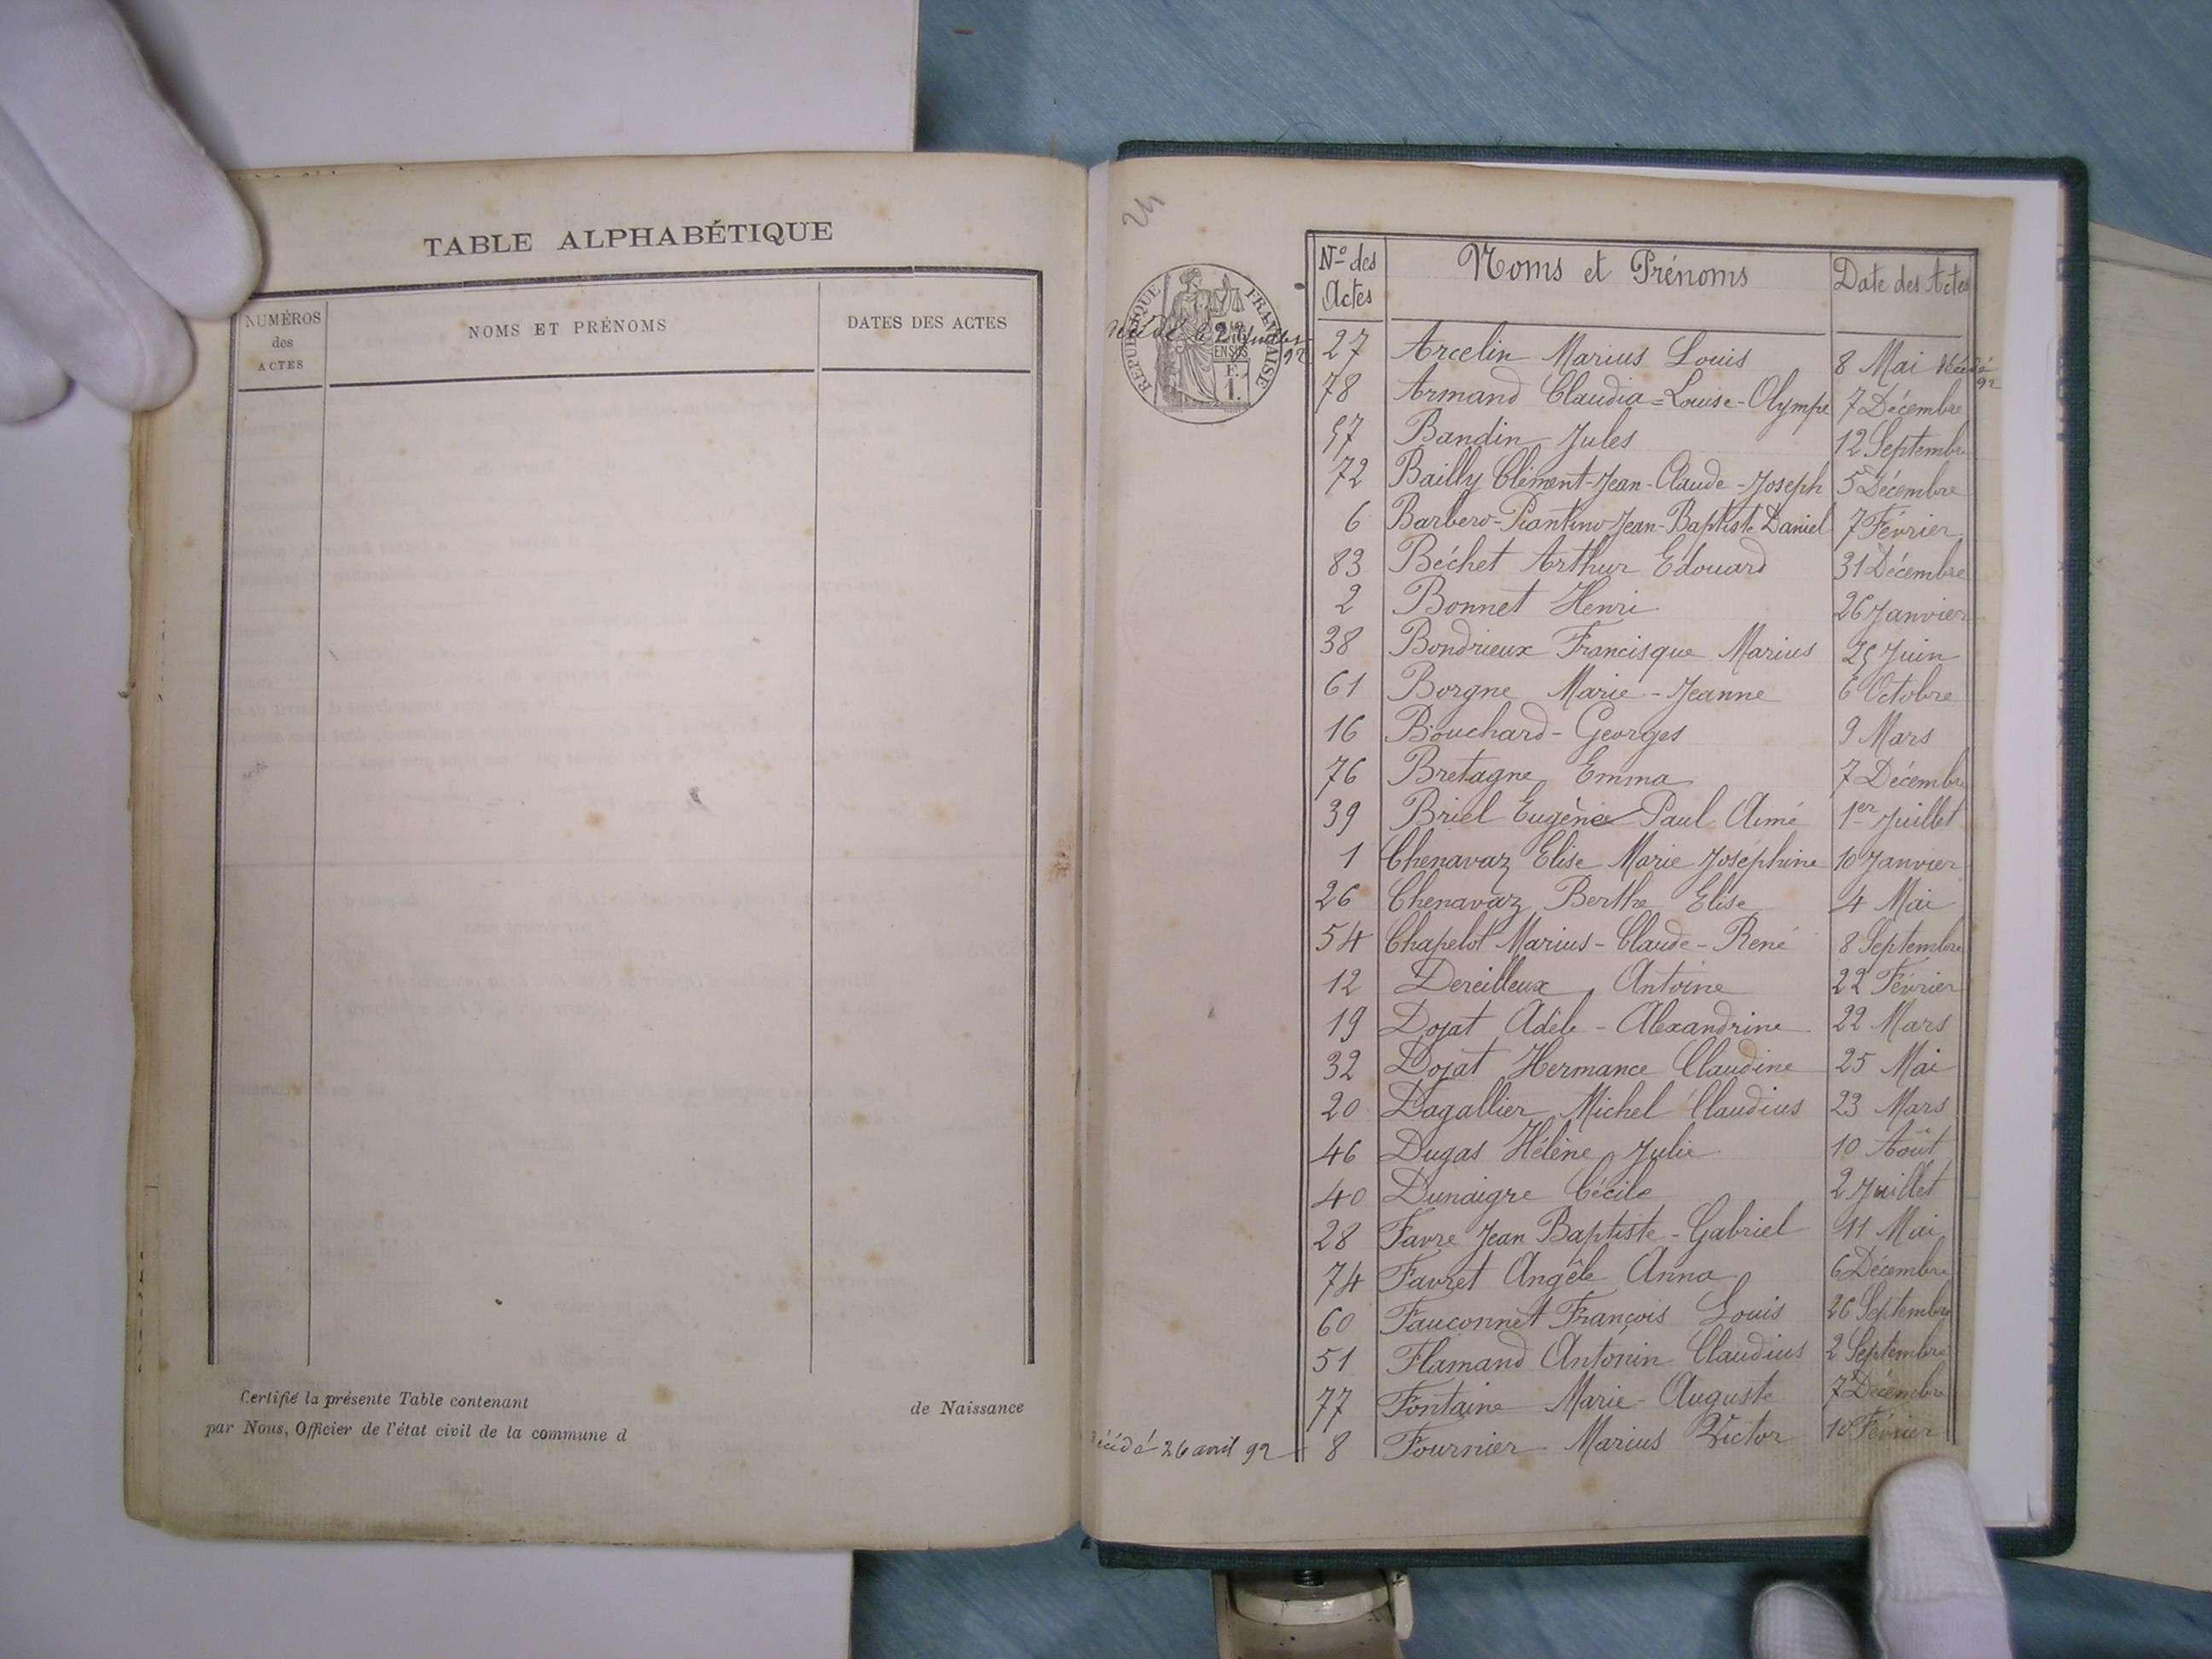 TABLE ALPHABÉTIQUE
NUMÉROS des ACTES NOMS ET PRÉNOMS DATES DES ACTES
Certifié la présente Table contenant de Naissance
par Nous, Officier de l'état civil de la commune d
24
RÉPUBLIQUE FRANÇAISE
N° des Actes Noms et Prénoms Date des Actes
27 Arcelin Marius Louis 8 Mai décédé 92
78 Armand Claudia=Louise-Olympe 7 Décembre
57 Bandin Jules 12 Septembre
72 Bailly Clément-Jean-Claude-Joseph 5 Décembre
6 Barbero-Piantino Jean-Baptiste Daniel 7 Février
83 Béchet Arthur Edouard 31 Décembre
2 Bonnet Henri 26 Janvier
38 Bondrieux Francisque Marius 25 Juin
61 Borgne Marie-Jeanne 6 Octobre
16 Bouchard-Georges 9 Mars
76 Bretagne Emma 7 Décembre
39 Briel Eugène Paul Aimé 1er Juillet
1 Chenavaz Elise Marie Joséphine 10 Janvier
26 Chenavaz Berthe Elise 4 Mai
54 Chapelot Marius-Claude-René 8 Septembre
12 Dereilleux Antoine 22 Février
19 Dojat Adèle-Alexandrine 22 Mars
32 Dojat Hermance Claudine 25 Mai
20 Dagallier Michel Claudius 23 Mars
46 Dugas Hélène Julie 10 Août
40 Dunaigre Cécile 2 Juillet
28 Favre Jean Baptiste-Gabriel 11 Mai
74 Favret Angèle Anna 6 Décembre
60 Fauconnet François Louis 26 Septembre
51 Flamand Antonin Claudius 2 Septembre
77 Fontaine Marie-Auguste 7 Décembre
décédé 26 avril 92 8 Fournier Marius Victor Février